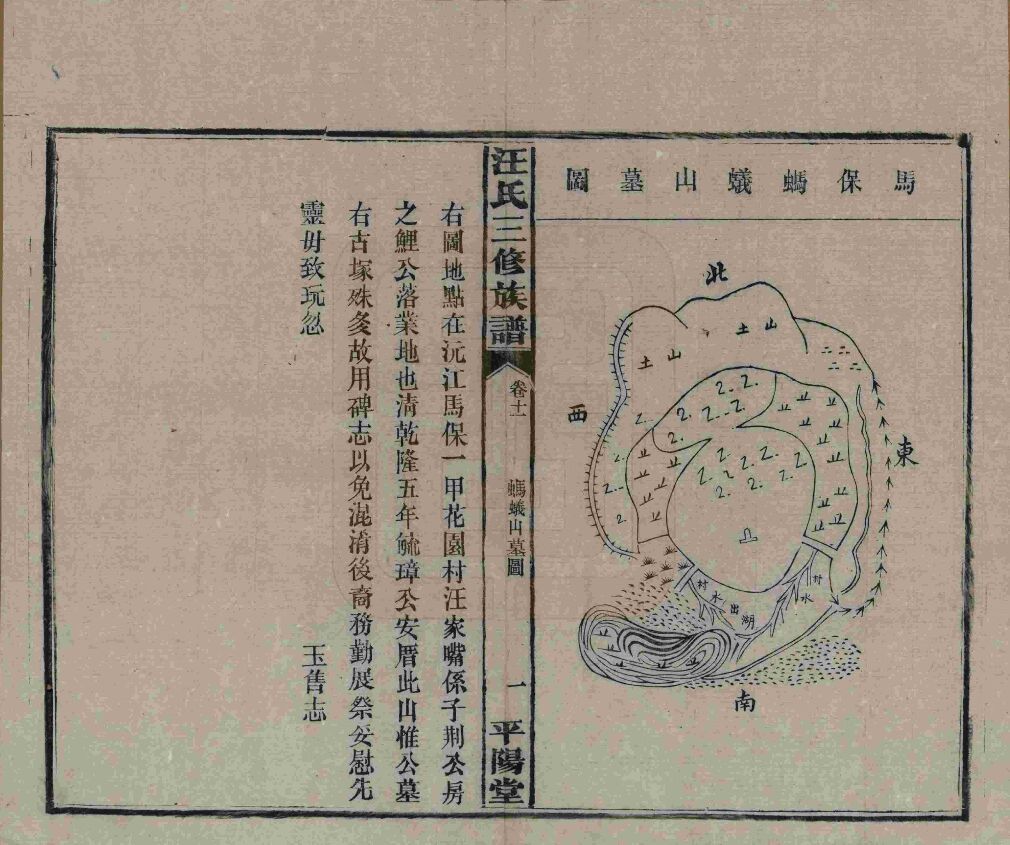 馬保螞蟻山墓圖
北
土山
土山
東
西
村水
村水出湖
南
汪氏三修族譜
卷十一
螞蟻山墓圖
一
平陽堂
右圖地點在沅江馬保一甲花園村汪家嘴係子荆公房
之鯉公落業地也清乾隆五年毓璋公安厝此山惟公墓
右古塚殊多故用碑志以免混淆後裔務勤展祭妥慰先
靈毋致玩忽
玉雋志